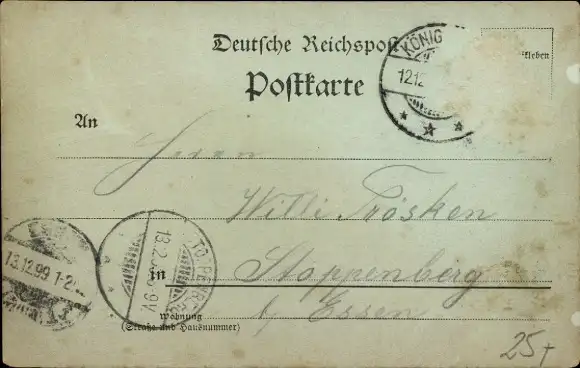 Deutsche Reichspost
KÖNIG
kleben
Postkarte
12.12
An
Herrn
Willi Trösken
13.12.99 1-2
in Stoppenberg
b/ Essen
Wohnung
(Straße und Hausnummer)
25,-